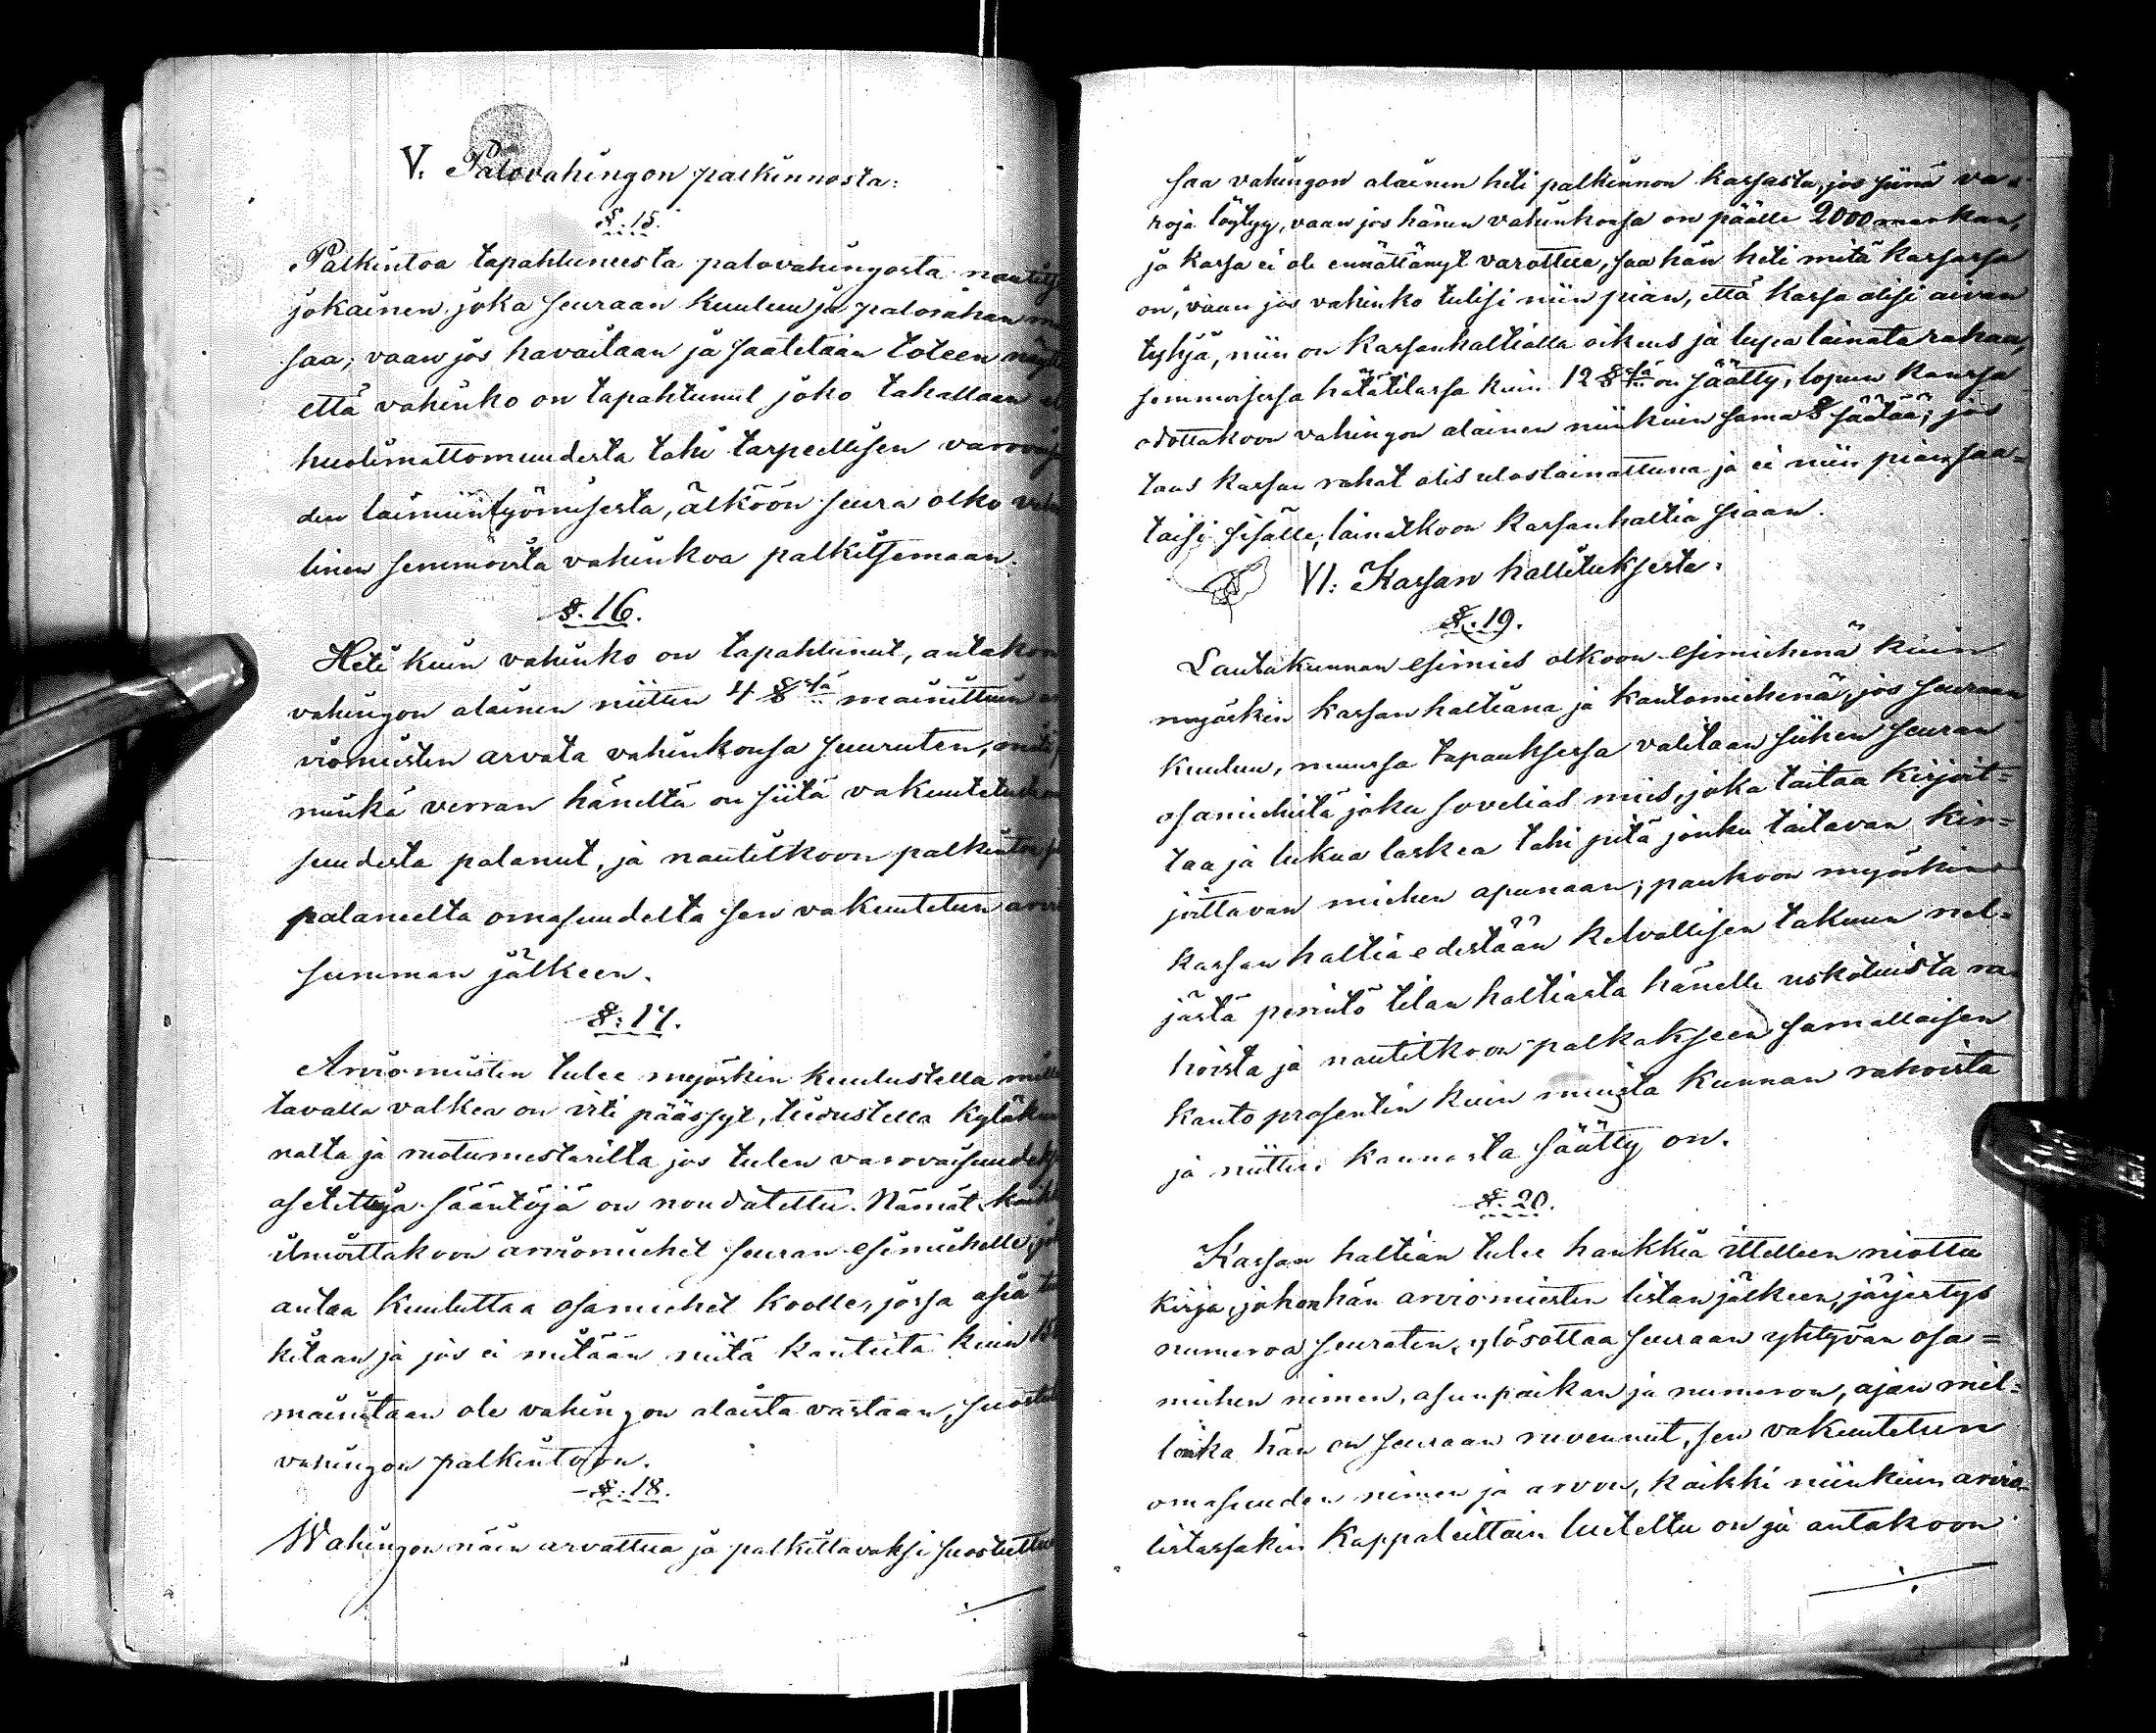 V. Palovahingon palkinnosta:
§. 15.
Palkintoa tapahtuneesta palovahingosta nautitj
jokainen joka seuraan kuuluu ja palorahan
saa; vaan jos havaitaan ja saatetaan toteen näyt
että vahinko on tapahtunut joko tahallaan
huolimattomuudesta tahi tarpeellisen varovaj
den laiminlyömisestä, älköön seura olko vel
linen semmoista vahinkoa palkitsemaan.
§. 16.
Heti kuin vahinko on tapahtunut, antakon
vahingon alainen niitten 4 §ssä mainittuin ar
viomiesten arvata vahinkonsa suuruten,
minkä verran häneltä on siitä vakuutetusta om
suudesta palanut, ja nautitkoon palkintoa
palaneelta omasuudelta sen vakuutetun arvi
summan jälkeen.
§: 17.
Arviomiesten tulee myöskin kuulustella millä
tavalla valkea on irti päässyt, tiedustella kyläkun
nalta ja ruotumestarilta jos tulen varovaisuudeks
asetettuja sääntöjä on noudatettu. Nämät kaikk
ilmoittakoon arviomiehet seuran esimiehelle, jo
antaa kuuluttaa osamiehet koolle, jossa asia tu
kitaan ja jos ei mitään niitä kanteita kuin 15
mainitaan ole vahingon alaista vastaan, suostut
vahingon palkintoon.
§: 18.
Wahingon näin arvattua ja palkittavaksi suostuttua
saa vahingon alainen heti palkinnon kassasta, jos siinä va=
roja löytyy, vaan jos hänen vahinkonsa on päälle 2000 markan,
ja kassa ei ole ennättänyt varottua, saa hän heti mitä kassassa
on, vaan jos vahinko tulisi niin pian, että kassa olisi aivan
tyhjä, niin on kassanhaltialla oikeus ja lupa lainata rahaa,
semmoisessa hätätilassa kuin 12 §ssä on säätty, lopun kanssa
odottakoon vahingon alainen niinkuin sama § säätää; jos
taas kassan rahat olis uloslainattuna ja ei niin pian saa=
taisi sisälle, lainatkoon kassanhaltia siaan.
VI: Kassan hallituksesta.
§. 19.
Lautakunnan esimies olkoon esimiehenä kuin
myöskin kassanhaltiana ja kantomiehenä, jos seuraan
kuuluu, muussa tapauksessa valitaan siihen seuran
osamiehistä joku sovelias mies, joka taitaa kirjoit=
taa ja lukua laskea tahi pitä jonku taitavan kir=
joittavan miehen apunaan; pankoon myöskin
kassan haltia edestään kelvollisen takuun nel=
jästä perintö tilan haltiasta hänelle uskotuista ra=
hoista ja nautitkoon palkakseen samallaisen
kanto prosentin kuin muista kunnan rahoista
ja niitten kannosta säätty on.
§. 20.
Kassan haltian tulee hankkia ittelleen niottu
kirja, johon hän arviomiesten listan jälkeen, järjestys
numeroa seuraten, ylösottaa seuraan yhtyvän osa=
miehen nimen, asunpaikan ja numeron, ajan mil=
loinka hän on seuraan ruvennut, sen vakuutetun
omasuuden nimen ja arvon, kaikki niinkuin arvio=
listassakin kappaleittain lueteltu on ja antakoon